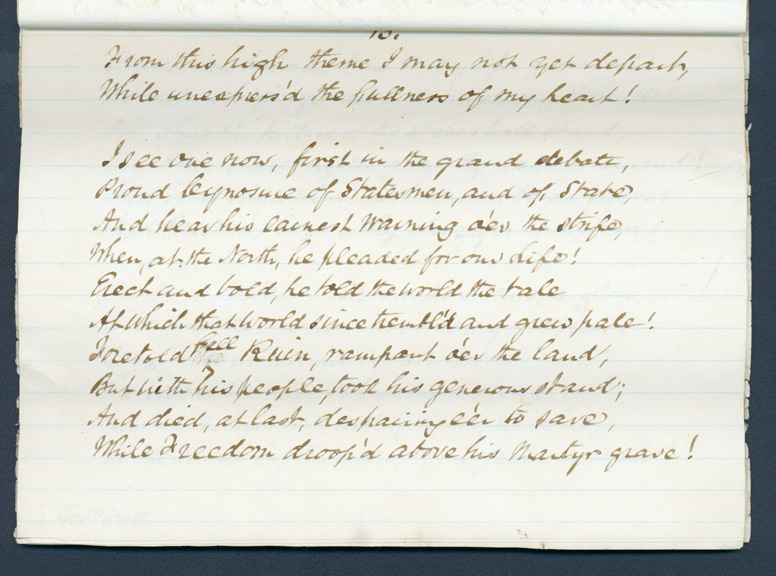 From this high theme I may not yet depart,
While unexpress'd the fullness of my heart!
I see one now, first in the grand debate,
Proud Cynosure of Statesmen, and of State,
And hear his earnest Warning o'er the strife,
When, at the North, he pleaded for our Life!
Erect and bold, he told the world the tale
At which that world since trembl'd and grew pale!
Foretold fell Ruin, rampant o'er the land,
But with his people, took his generous stand;
And died, at last, despairing e'er to save,
While Freedom droop'd above his Martyr grave!